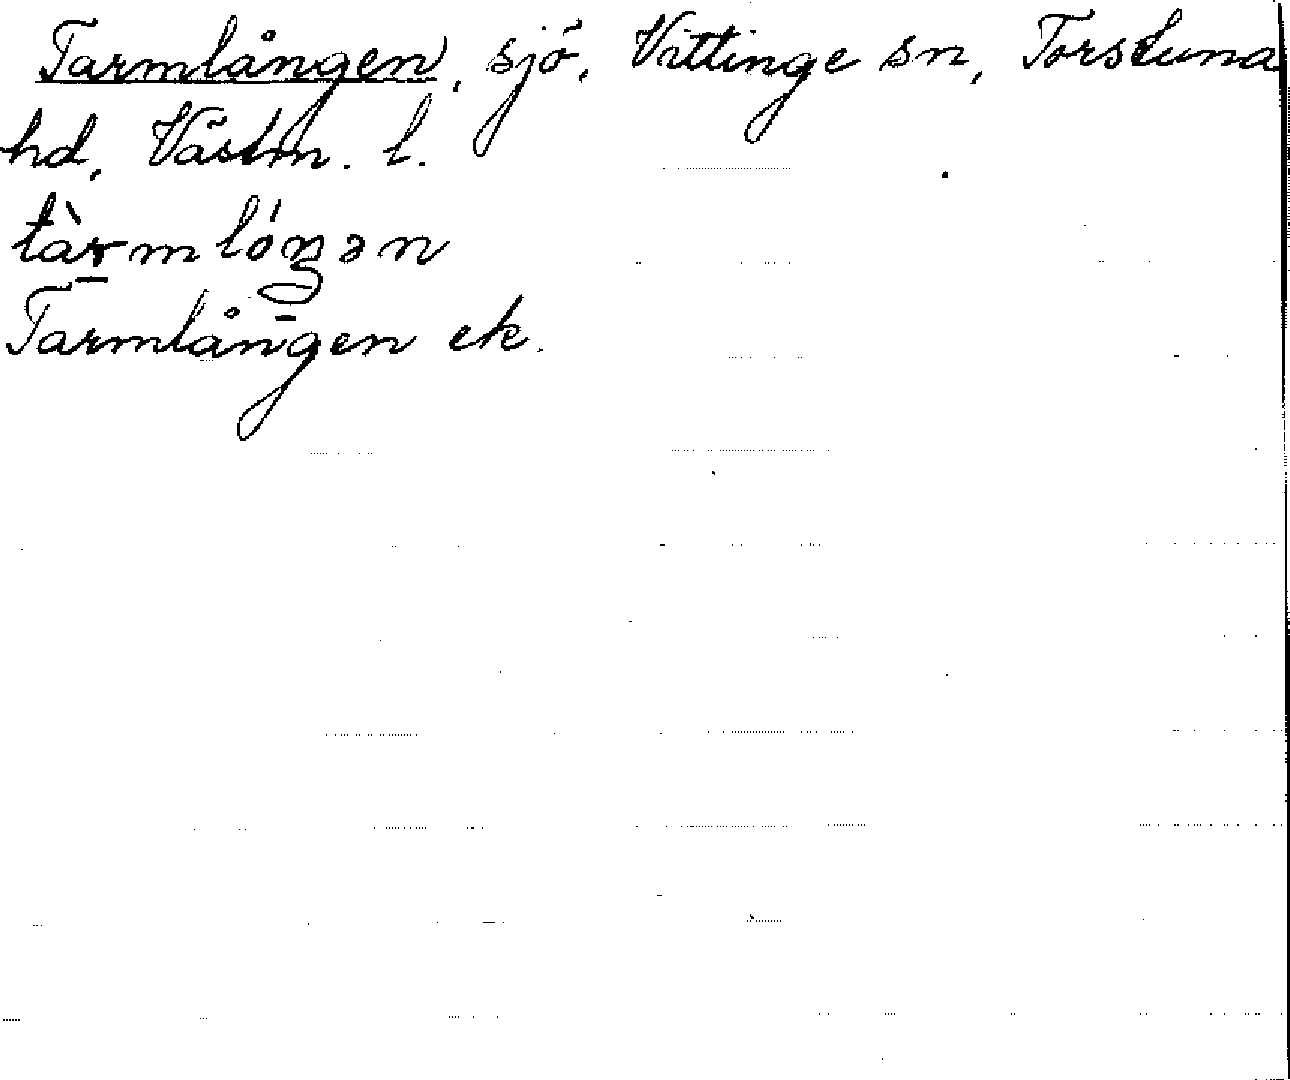 Tarmlången, sjö, Vittinge sn, Torstuna
hd, Västm. l.
tàrmlóŋən
Tarmlången ek.